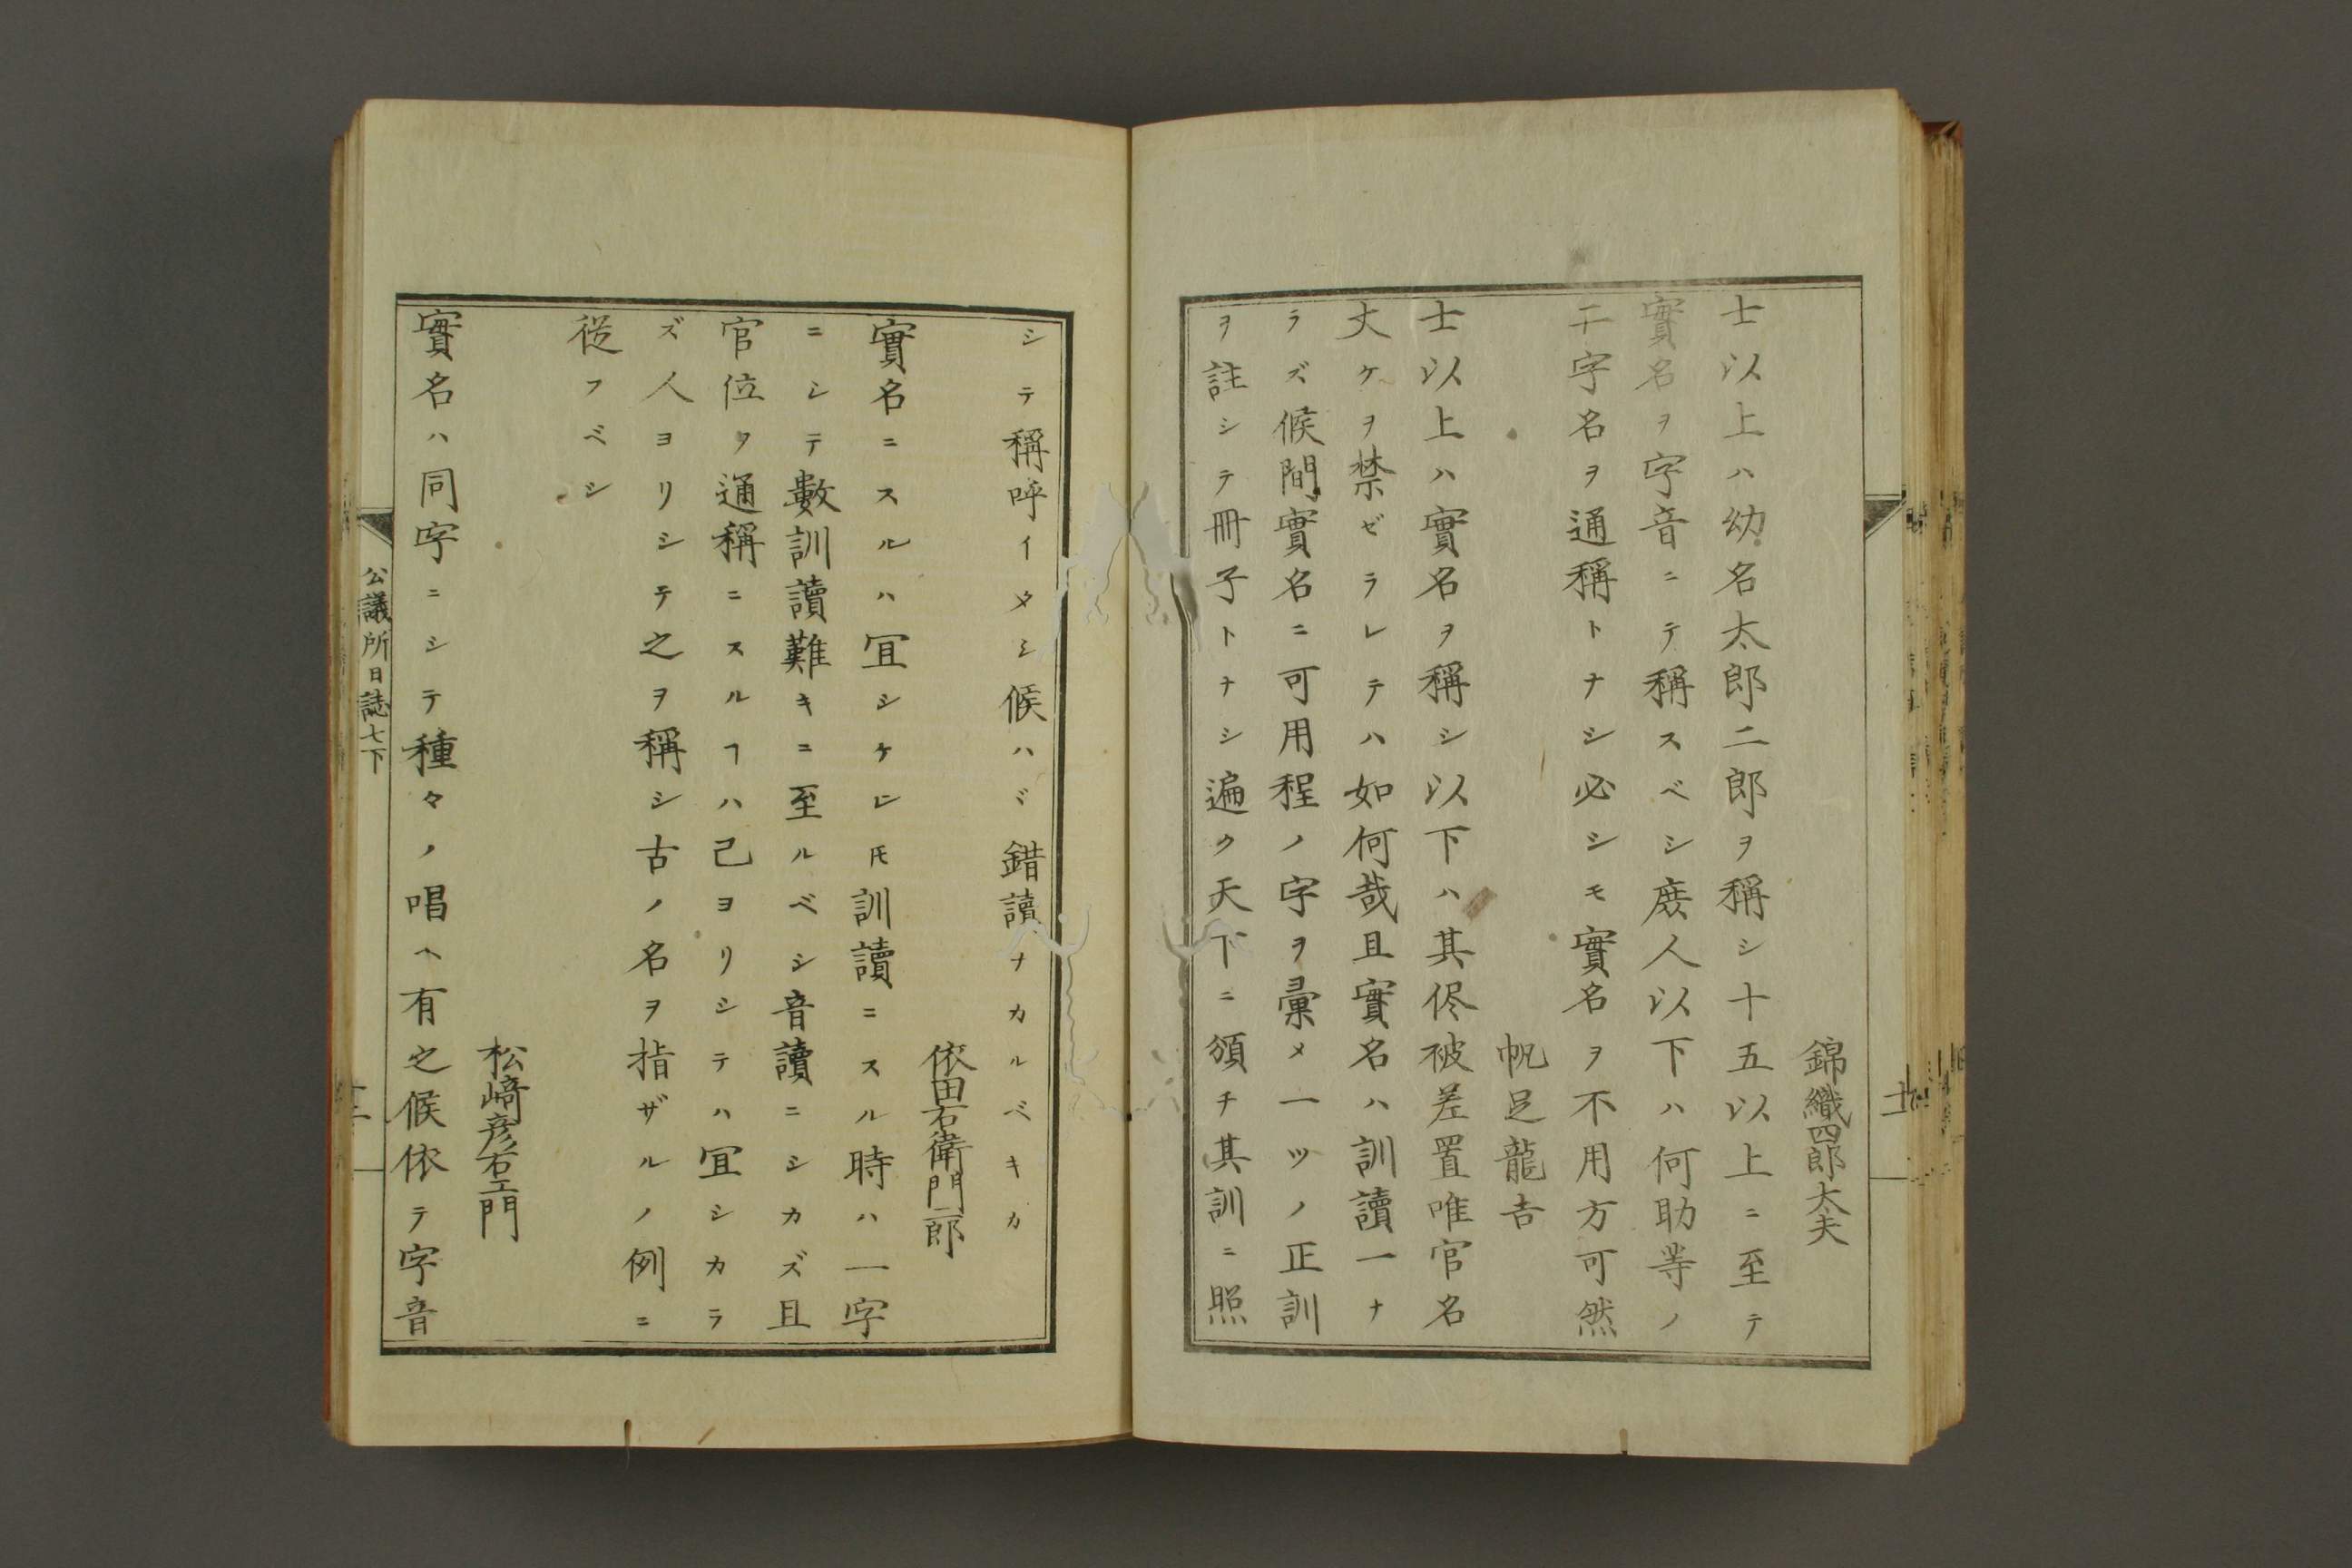 錦織四郎太夫
士以上ハ幼名太郎二郎ヲ稱シ十五以上ニ至テ
實名ヲ字音ニテ稱スベシ庻人以下ハ何助等ノ
二字名ヲ通稱トナシ必シモ實名ヲ不用方可然
帆足龍吉
士以上ハ實名ヲ稱シ以下ハ其侭被差置唯官名
丈ケヲ禁ゼラレテハ如何哉且實名ハ訓讀一ナ
ラズ候間實名ニ可用程ノ字ヲ彙メ一ツノ正訓
ヲ註シテ冊子トナシ遍ク天下ニ頒チ其訓ニ照
シテ稱呼イタシ候ハヾ錯讀ナカルベキカ
依田右衛門二郎
實名ニスルハ冝シケレ𪜈訓讀ニスル時ハ一字
ニシテ數訓讀難キニ至ルベシ音讀ニシカズ且
官位ヲ通稱ニスルヿハ己ヨリシテハ冝シカラ
ズ人ヨリシテ之ヲ稱シ古ノ名ヲ指ザルノ例ニ
從フベシ
松﨑彦右エ門
實名ハ同字ニシテ種々ノ唱ヘ有之候依テ字音
公議所日誌七下